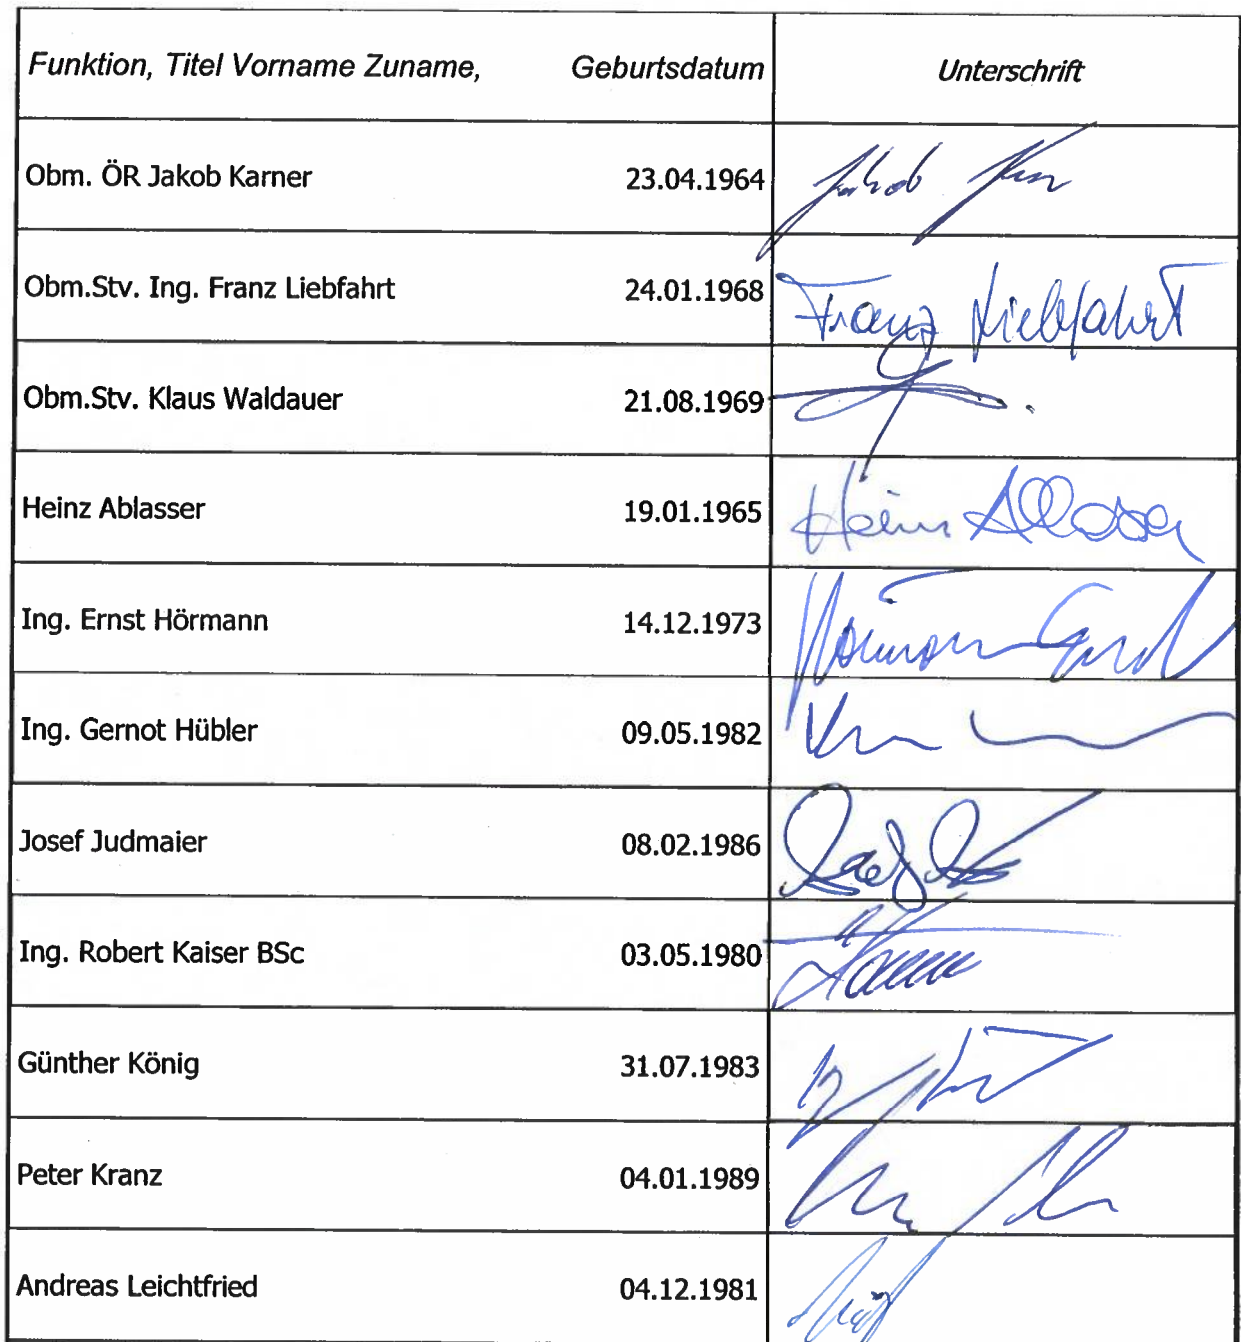 Funktion, Titel Vorname Zuname, Geburtsdatum Unterschrift
Obm. ÖR Jakob Karner 23.04.1964 Jakob
Obm.Stv. Ing. Franz Liebfahrt 24.01.1968 Franz Liebfahrt
Obm.Stv. Klaus Waldauer 21.08.1969
Heinz Ablasser 19.01.1965 Heinz Ablasser
Ing. Ernst Hörmann 14.12.1973 Hörmann Ernst
Ing. Gernot Hübler 09.05.1982
Josef Judmaier 08.02.1986
Ing. Robert Kaiser BSc 03.05.1980
Günther König 31.07.1983
Peter Kranz 04.01.1989
Andreas Leichtfried 04.12.1981